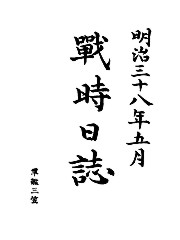 明治三十八年五月
戰時日誌
軍艦三笠